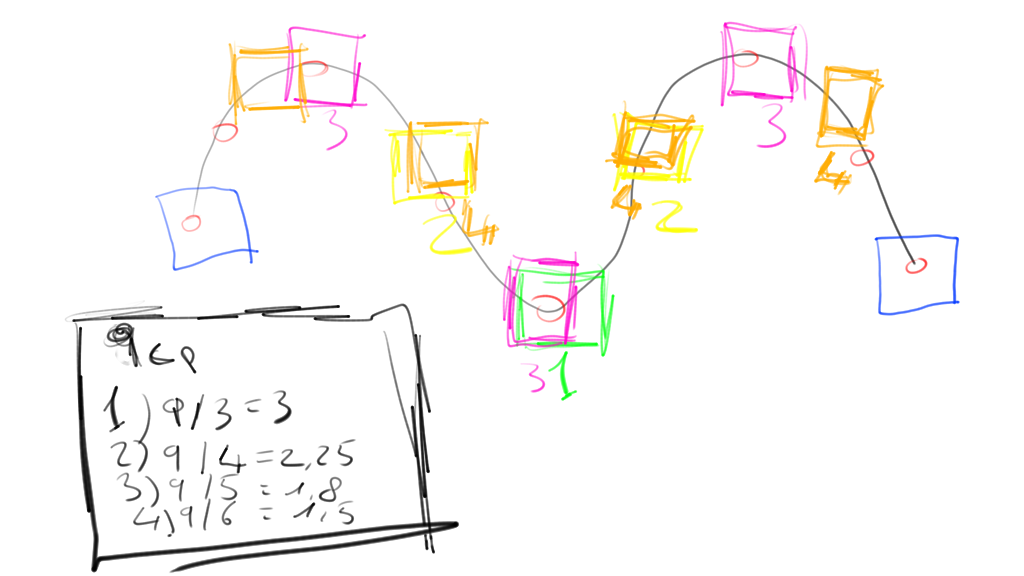 3
3
4
2
4
4
2
3 1
9 CP
1) 9/3 = 3
2) 9/4 = 2,25
3) 9/5 = 1,8
4) 9/6 = 1,5